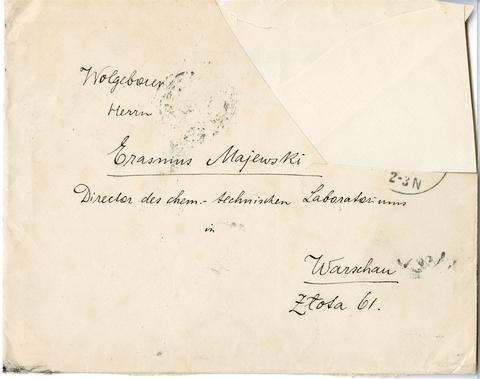 Wolgeboren
Herrn
Erasmus Majewski
Director des chem.-technischen Laboratoriums
in
Warschau
Złota 61.
2-3N